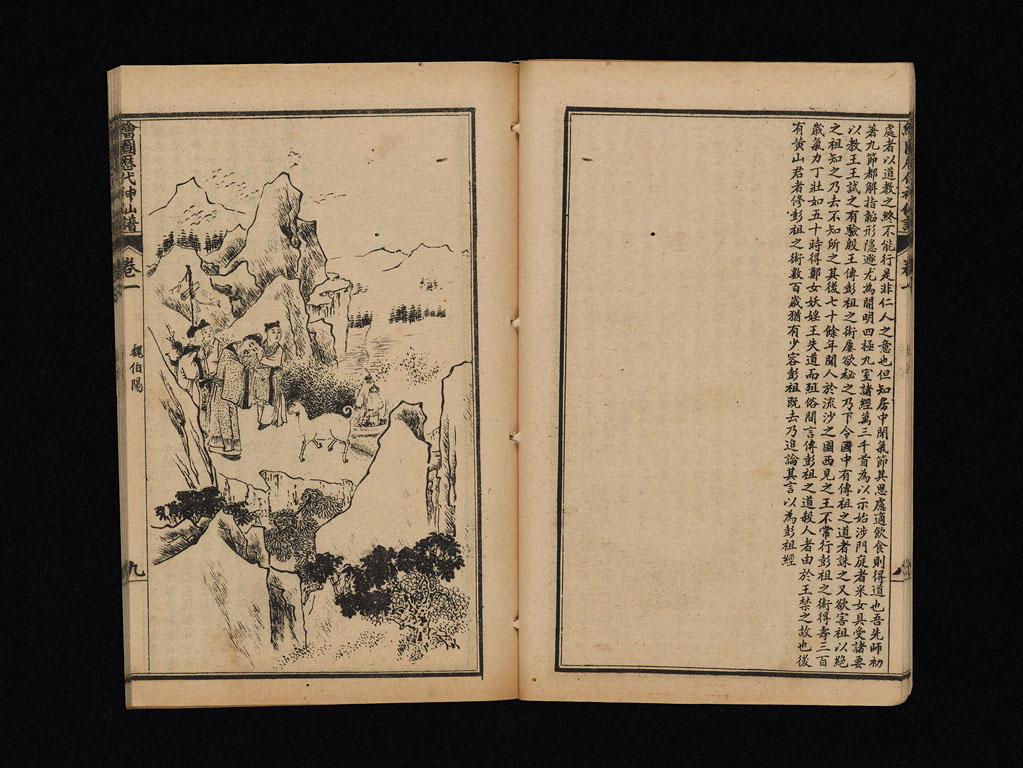 處者以道教之終不能行是非仁人之意也但知房中閉氣節其思慮適飲食則得道也吾先師初
著九節都解指韜形隱遯尤為開明四極九室諸經萬三千首為以示始涉門庭者采女具受諸要
以教王王試之有驗殷王傳彭祖之術屢欲秘之乃下令國中有傳祖之道者誅之又欲害祖以絕
之祖知之乃去不知所之其後七十餘年聞人於流沙之國西見之王不常行彭祖之術得壽三百
歲氣力丁壯如五十時得鄭女妖婬王失道而殂俗間言傳彭祖之道殺人者由於王禁之故也後
有黄山君者修彭祖之術數百歲猶有少容彭祖既去乃追論其言以為彭祖經
繪圖歷代神仙譜
卷一
魏伯陽
九